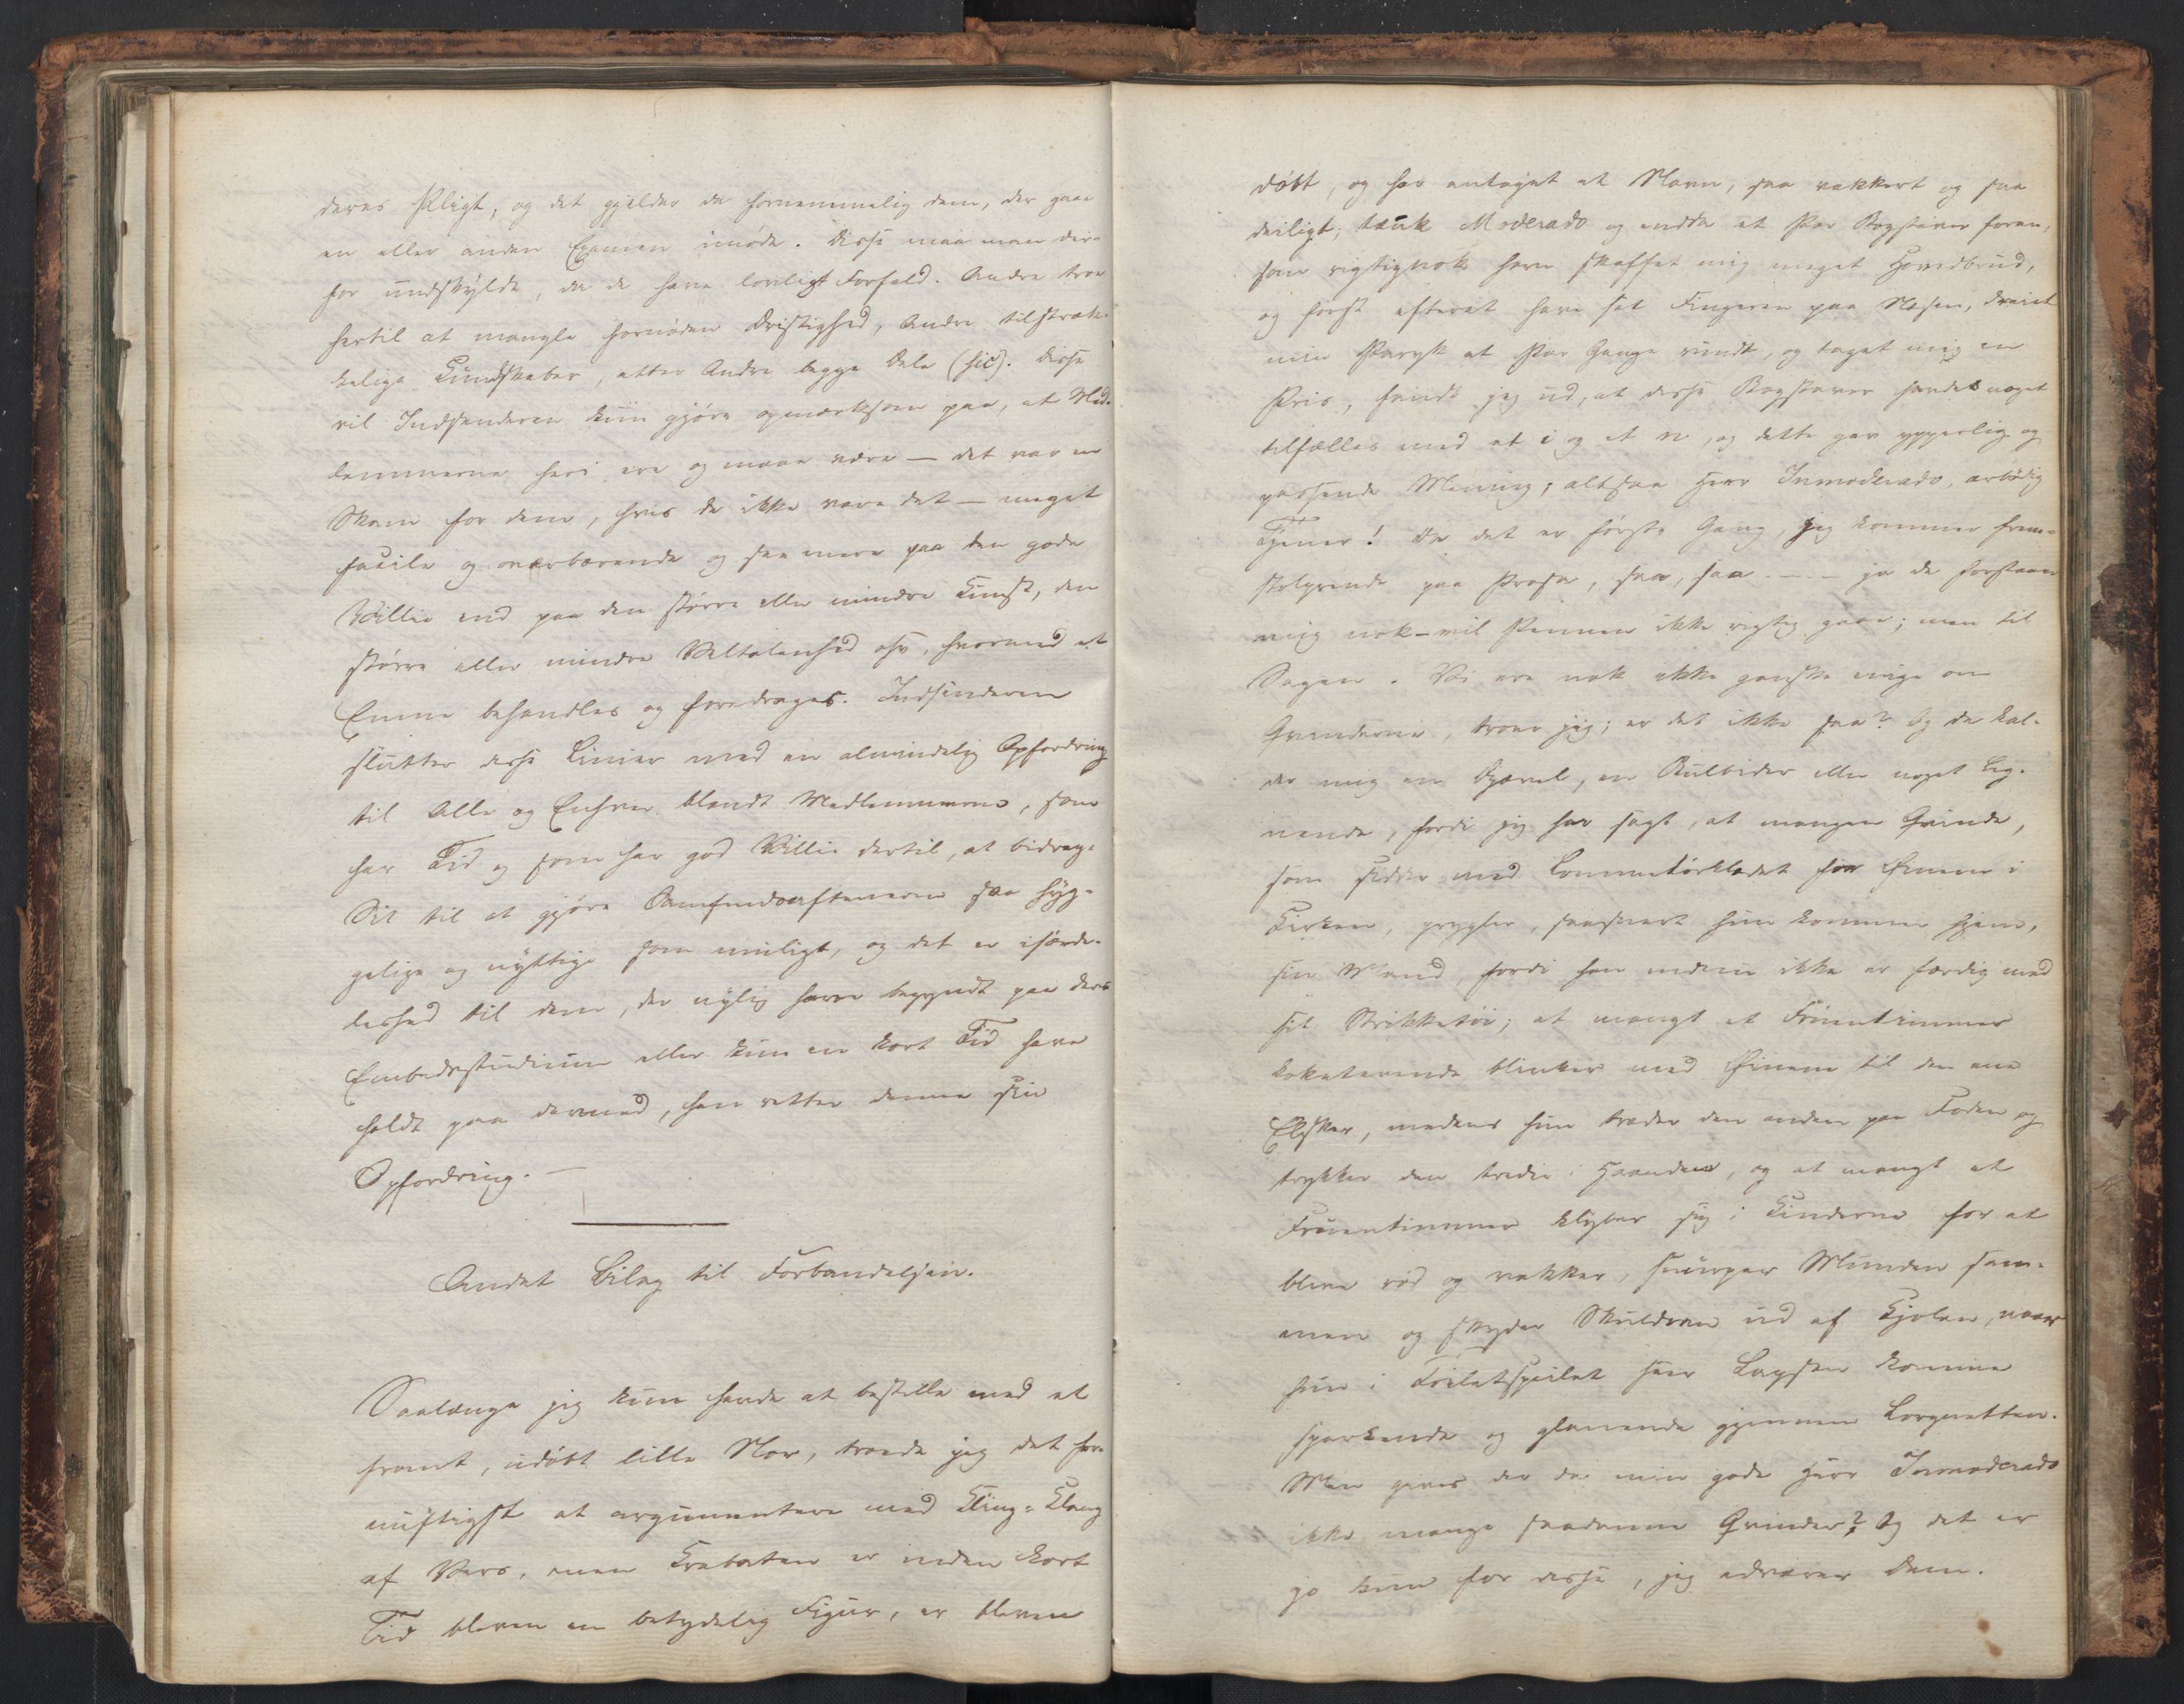 deres Pligt, og det gjelder da fornemmelig dem, der gaae
en eller anden Examen imøde. Disse maa man der-
for undskylde, da de have lovligt Forfald. Andre troe
hertil at mangle fornøden Dristighed, Andre tilstræk-
kelige Kundskaber, atter Andre begge Dele (sic). Disse
vil Indsenderen kun gjøre opmærksom paa, at Med-
lemmerne heri ere og maae være — det var en
Skam for dem, hvis de ikke vare det — meget
facile og overbærende og see mere paa den gode
Villie end paa den større eller mindre Kunst, den
større eller mindre Veltalenhed osv, hvormed et
Emne behandles og foredrages. Indsenderen
slutter disse Linier med en almindelig Opfordring
til Alle og Enhver blandt Medlemmerne, som
har Tid og som har god Villie dertil, at bidrage
Sit til at gjøre Samfundsaftenerne saa hyg-
gelige og nyttige som muligt, og det er isærde-
leshed til dem, der nylig have begyndt paa deres
Embedsstudium eller kun en kort Tid have
holdt paa dermed, han retter denne sin
Opfordring. —
Andet Bilag til Forbandelsen.
Saalænge jeg kun havde at bestille med et
fromt, udøbt lille Nor, troede jeg det for-
nuftigst at argumentere med Kling-Klang
af Vers, men Krabaten er inden kort
Tid bleven en betydelig Figur, er bleven
døbt, og har antaget et Navn, saa vakkert og saa
deiligt; tænk Moderado og endda et Par Bogstaver foran,
som rigtignok have skaffet mig meget Hovedbrud,
og først efterat have sat Fingeren paa Næsen, dreiet
min Paryk et Par Gange rundt, og taget mig en
Priis, fandt jeg ud, at disse Bogstaver havde noget
tilfælles med et i og et n, og dette gav ypperlig og
passende Mening; altsaa Herr Inmoderado, ærbødig
Tjener! Da det er første Gang, jeg kommer frem-
stolprende paa Prosa, saa, saa — — ja de forstaaer
mig nok — vil Pennen ikke rigtig gaae; men til
Sagen. Vi ere nok ikke ganske enige om
Qvinderne, troer jeg; er det ikke saa? Og De kal-
der mig en Djævel, en Bulbider eller noget Lig-
nende, fordi jeg har sagt, at mangen Qvinde,
som sidder med Lommetørklædet for Øinene i
Kirken, prygler, saasnart hun kommer hjem,
sin Mand, fordi han endnu ikke er færdig med
sit Strikketøi; at mangt et Fruentimmer
koketerende blinker med Øinene til den ene
Elsker, medens hun træder den anden paa Foden og
trykker den tredie i Haanden, og at mangt et
Fruentimmer klyber sig i Kinderne for at
blive rød og vakker, snurper Munden sam-
men og skyder Skuldren ud af Kjolen, naar
hun i Toiletspeilet seer Lapsen komme
sparkende og glanende gjennem Lorgnetten.
Men gives der da min gode Herr Inmoderado
ikke mange saadanne Qvinder? Og det er
jo kun for disse, jeg advarer Dem.